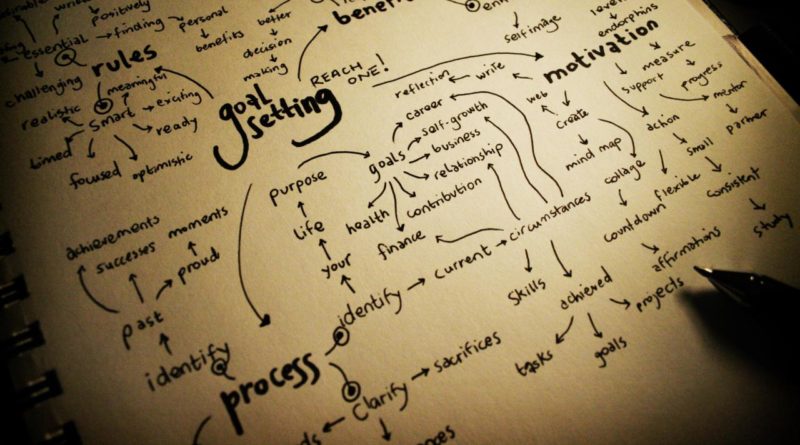 positively
essential
finding
personal
benefits
better
decision
making
self image
endorphins
rules
challenging
meaningful
realistic
smart
exciting
ready
timed
focused
optimistic
goal
setting
REACH
ONE!
motivation
reflection
write
web
create
mind map
collage
countdown
measure
support
progress
mentor
action
small
partner
flexible
consistent
study
affirmations
purpose
life
your
identify
goals
career
self-growth
business
relationship
contribution
health
finance
current
circumstances
skills
achieved
projects
tasks
goals
achievements
successes
moments
proud
past
identify
process
Clarify
sacrifices